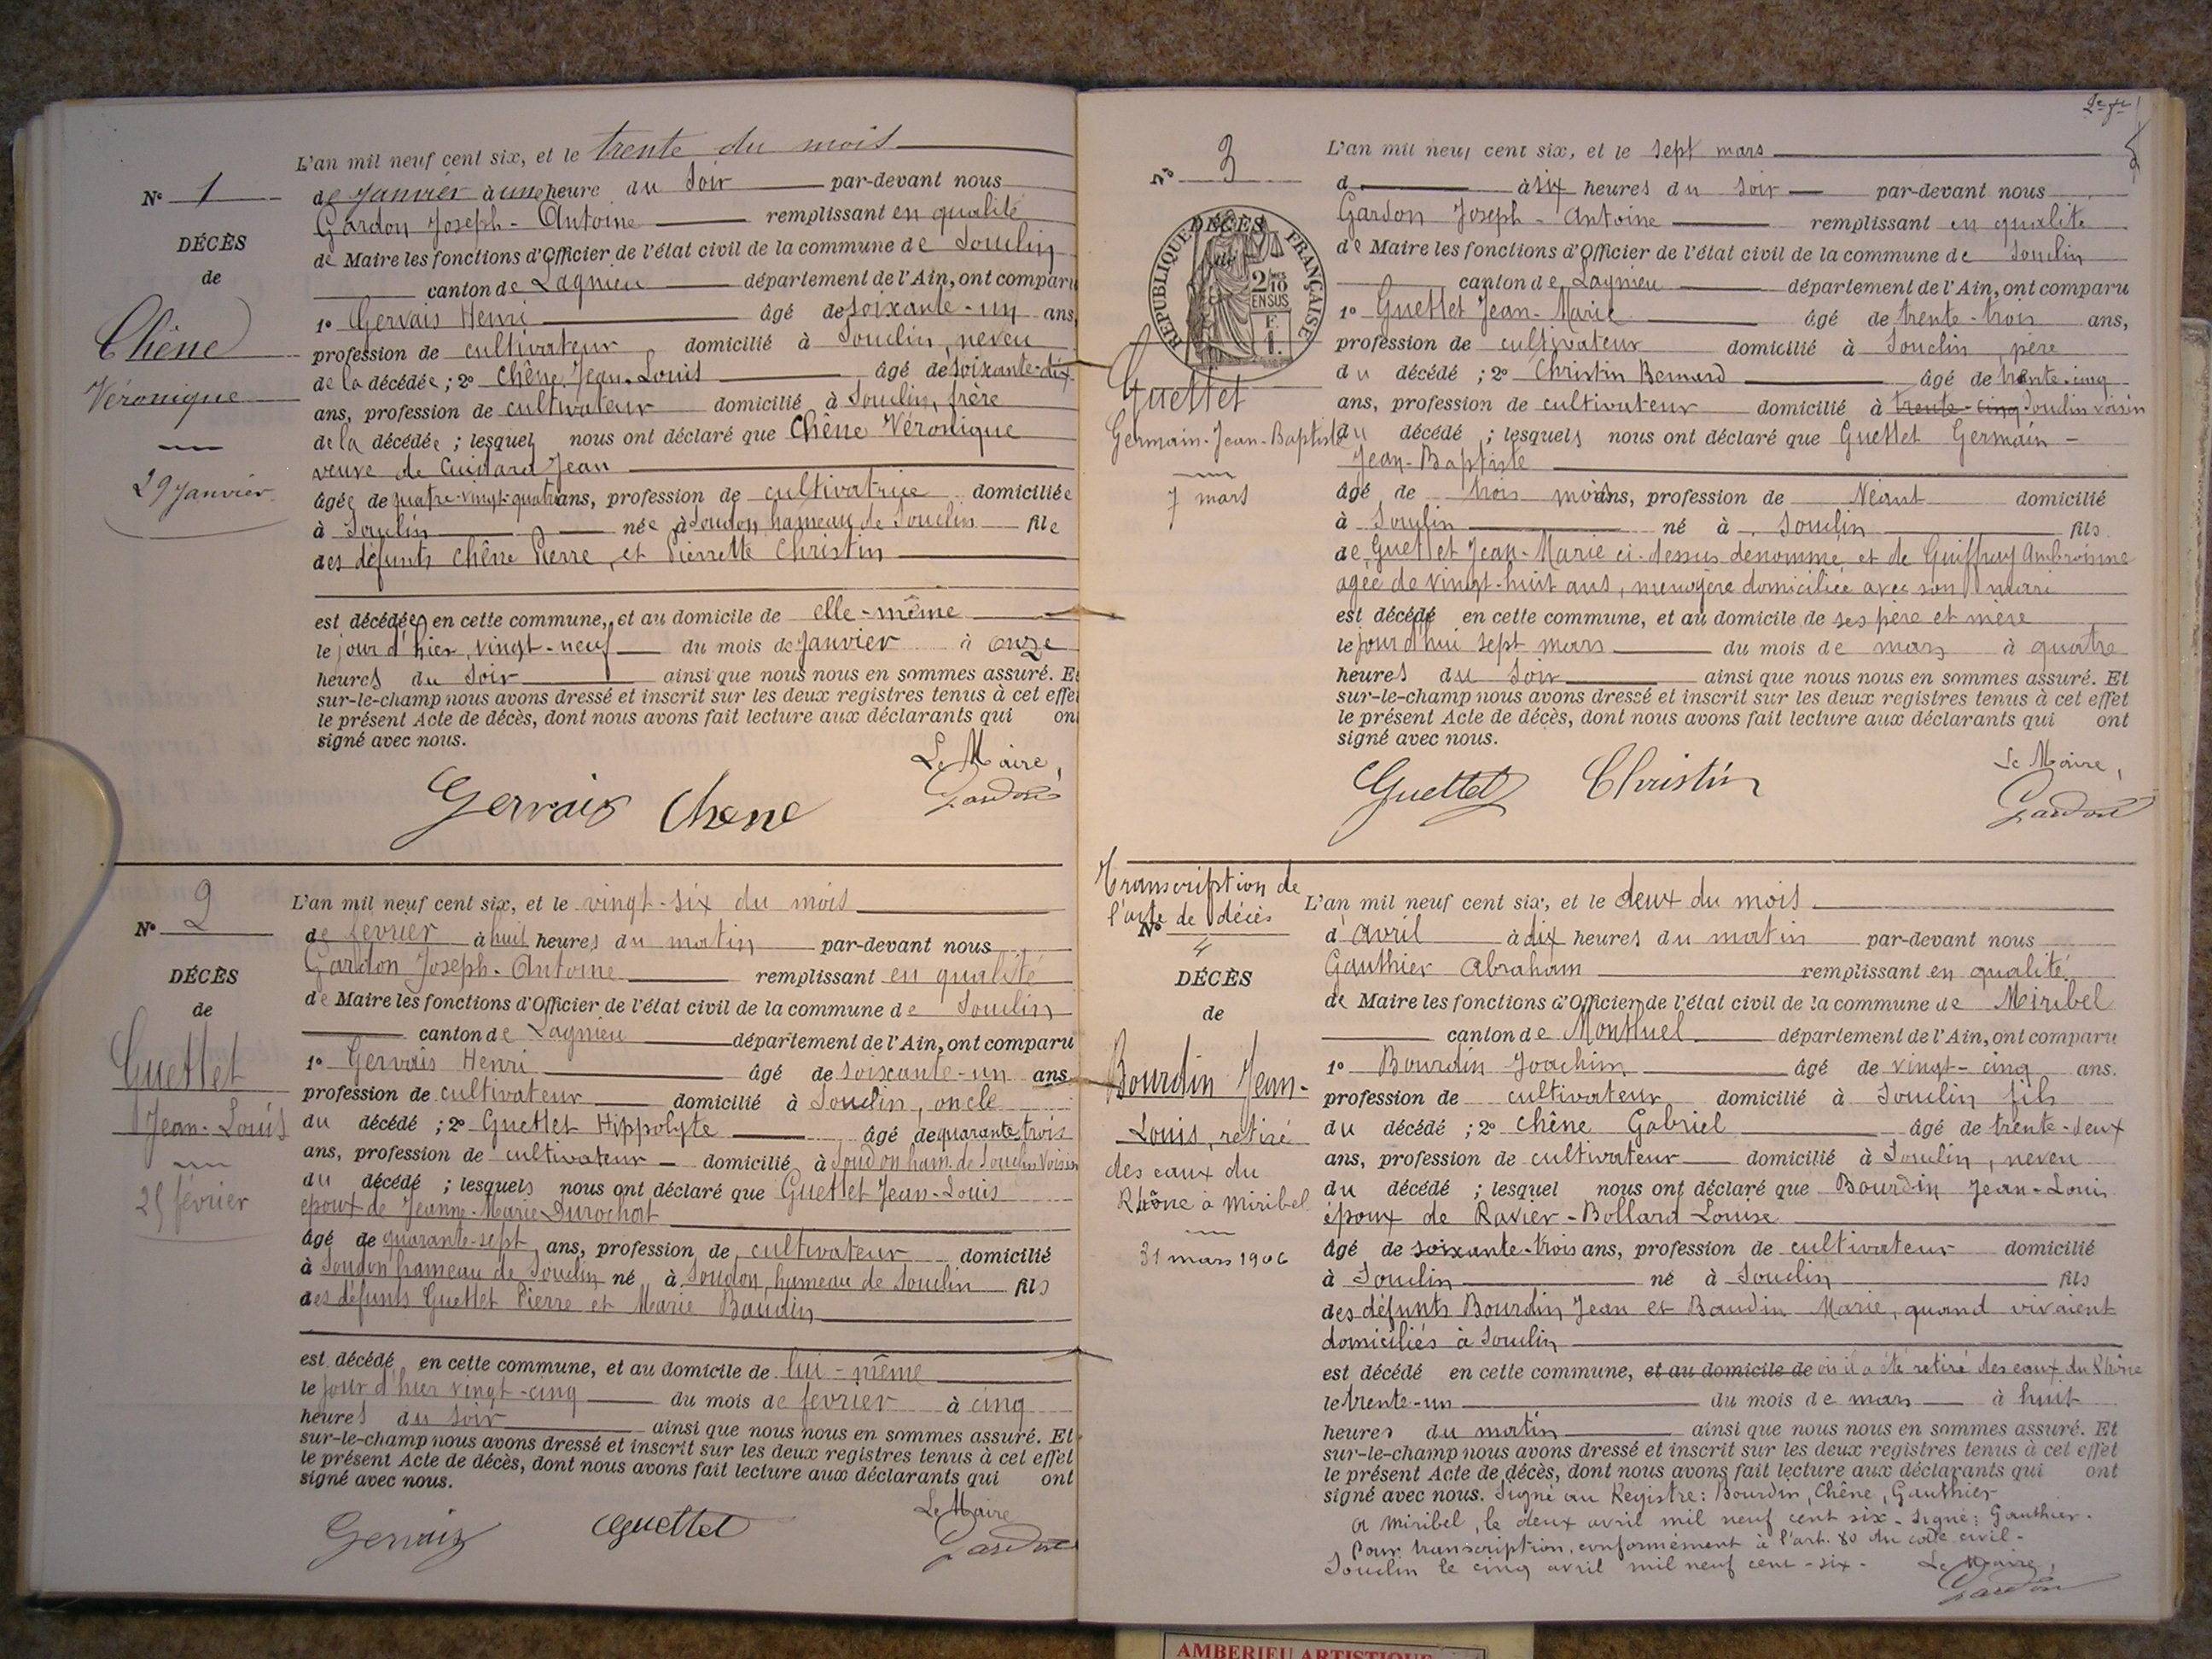 L'an mil neuf cent six, et le trente du mois
Nº 1
de Janvier à une heure du Soir par-devant nous
Gardon Joseph-Antoine remplissant en qualité
DÉCÈS
de Maire les fonctions d'Officier de l'état civil de la commune de Souclin
de
canton de Lagnieu département de l'Ain, ont comparu
1º Gervais Henri âgé de soixante-un ans,
Chêne
profession de cultivateur domicilié à Souclin, neveu
Véronique
de la décédée ; 2º Chêne Jean-Louis âgé de soixante-dix
ans, profession de cultivateur domicilié à Souclin, frère
de la décédée ; lesquels nous ont déclaré que Chêne Véronique
veuve de Cuinard Jean
29 Janvier
âgée de quatre-vingt-quatre ans, profession de cultivatrice domiciliée
à Souclin née à Soudon hameau de Souclin fille
des défunts Chêne Pierre, et Pierrette Christin
est décédée en cette commune, et au domicile de elle-même
le jour d'hier, vingt-neuf du mois de Janvier à onze
heures du Soir ainsi que nous nous en sommes assuré. Et
sur-le-champ nous avons dressé et inscrit sur les deux registres tenus à cet effet
le présent Acte de décès, dont nous avons fait lecture aux déclarants qui ont
signé avec nous.
Le Maire,
Gervais Chene Gardon
L'an mil neuf cent six, et le vingt-six du mois
Nº 2
de février à huit heures du matin par-devant nous
Gardon Joseph-Antoine remplissant en qualité
DÉCÈS
de Maire les fonctions d'Officier de l'état civil de la commune de Souclin
de
canton de Lagnieu département de l'Ain, ont comparu
1º Gervais Henri âgé de soixante-un ans
Guettet
profession de cultivateur domicilié à Souclin, oncle
Jean-Louis
du décédé ; 2º Guettet Hippolyte âgé de quarante-trois
ans, profession de cultivateur domicilié à Soudon ham. de Souclin Voisin
du décédé ; lesquels nous ont déclaré que Guettet Jean-Louis
25 février
époux de Jeanne-Marie Durochat
âgé de quarante-sept ans, profession de cultivateur domicilié
à Soudon hameau de Souclin né à Soudon, hameau de Souclin fils
des défunts Guettet Pierre et Marie Baudin
est décédé en cette commune, et au domicile de lui-même
le jour d'hier vingt-cinq du mois de février à cinq
heures du soir ainsi que nous nous en sommes assuré. Et
sur-le-champ nous avons dressé et inscrit sur les deux registres tenus à cet effet
le présent Acte de décès, dont nous avons fait lecture aux déclarants qui ont
signé avec nous.
Le Maire
Gervais Guettet Gardon
L'an mil neuf cent six, et le sept mars
Nº 3
d à six heures du soir par-devant nous
Gardon Joseph-Antoine remplissant en qualité
DÉCÈS
de
RÉPUBLIQUE FRANÇAISE
2/10 EN SUS
F. 1.
de Maire les fonctions d'Officier de l'état civil de la commune de Souclin
canton de Lagnieu département de l'Ain, ont comparu
1º Guettet Jean-Marie âgé de trente-trois ans,
profession de cultivateur domicilié à Souclin, père
Guettet
du décédé ; 2º Christin Bernard âgé de trente-cinq
ans, profession de cultivateur domicilié à trente-cinq Souclin Voisin
Germain-Jean-Baptiste
du décédé ; lesquels nous ont déclaré que Guettet Germain-
Jean-Baptiste
7 mars
âgé de trois mois ans, profession de Néant domicilié
à Souclin né à Souclin fils
de Guettet Jean-Marie ci-dessus dénommé et de Guiffray Ambroisine
agée de vingt-huit ans, menagère domiciliée avec son mari
est décédé en cette commune, et au domicile de ses père et mère
le jourd'hui sept mars du mois de mars à quatre
heures du Soir ainsi que nous nous en sommes assuré. Et
sur-le-champ nous avons dressé et inscrit sur les deux registres tenus à cet effet
le présent Acte de décès, dont nous avons fait lecture aux déclarants qui ont
signé avec nous.
Le Maire,
Guettet Christin Gardon
Transcription de
l'acte de décès
L'an mil neuf cent six, et le deux du mois
Nº 4
d'avril à dix heures du matin par-devant nous
Gauthier Abraham remplissant en qualité
DÉCÈS
de Maire les fonctions d'Officier de l'état civil de la commune de Miribel
de
canton de Montluel département de l'Ain, ont comparu
1º Bourdin Joachim âgé de vingt-cinq ans.
Bourdin Jean-
profession de cultivateur domicilié à Souclin fils
Louis, retiré
du décédé ; 2º Chêne Gabriel âgé de trente-deux
des eaux du
ans, profession de cultivateur domicilié à Souclin, neveu
Rhône à Miribel
du décédé ; lesquel nous ont déclaré que Bourdin Jean-Louis
époux de Ravier-Bollard Louise
31 mars 1906
âgé de soixante-trois ans, profession de cultivateur domicilié
à Souclin né à Souclin fils
des défunts Bourdin Jean et Baudin Marie, quand vivaient
domiciliés à Souclin
est décédé en cette commune, et au domicile de où il a été retiré des eaux du Rhône
le trente-un du mois de mars à huit
heures du matin ainsi que nous nous en sommes assuré. Et
sur-le-champ nous avons dressé et inscrit sur les deux registres tenus à cet effet
le présent Acte de décès, dont nous avons fait lecture aux déclarants qui ont
signé avec nous. Signé au Registre: Bourdin, Chêne, Gauthier
A Miribel, le deux avril mil neuf cent six. Signé: Gauthier.
Pour transcription, conformément à l'art. 80 du code civil.
Souclin le cinq avril mil neuf cent-six. Le Maire,
Gardon
AMBERIEU ARTISTIQUE